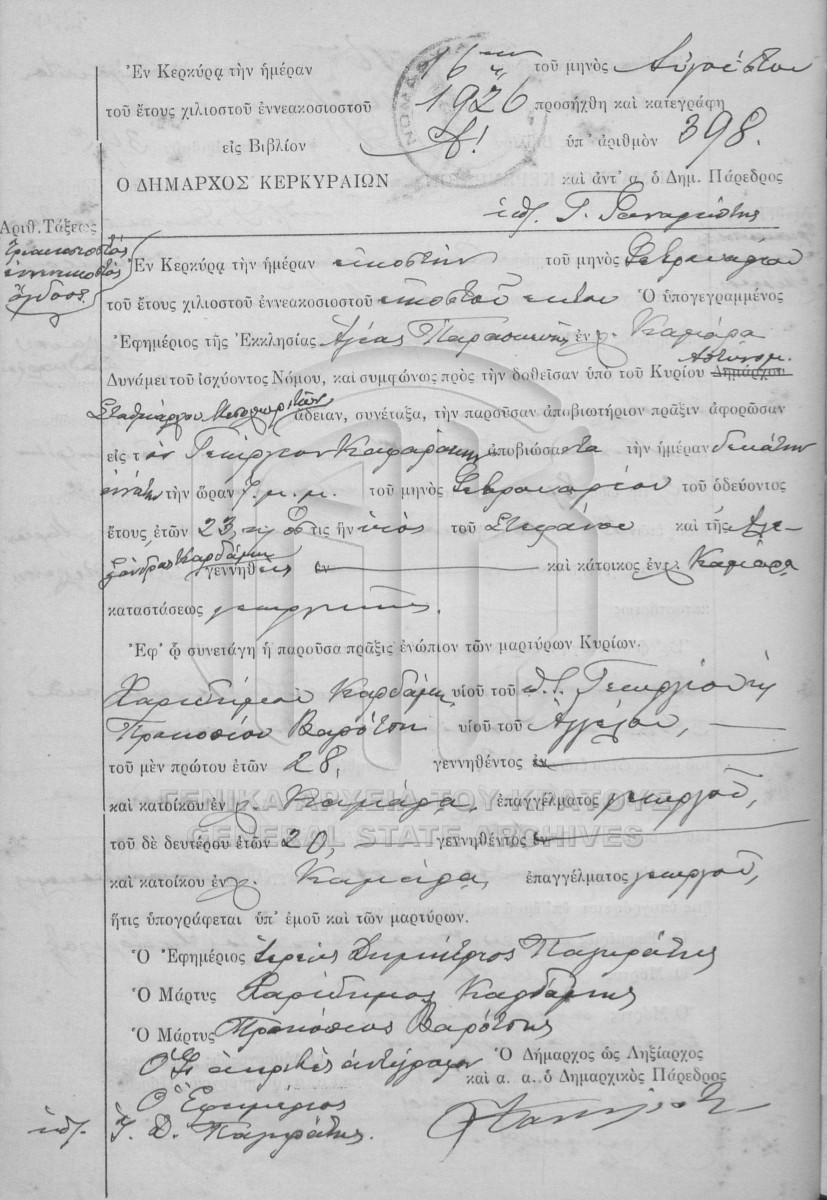 Ἐν Κερκύρᾳ τὴν ἡμέραν 16ην τοῦ μηνὸς Αὐγούστου
τοῦ ἔτους χιλιοστοῦ ἐννεακοσιοστοῦ 1926 προσήχθη καὶ κατεγράφη
εἰς Βιβλίον Α! ὑπ' ἀριθμὸν 398.
Ο ΔΗΜΑΡΧΟΣ ΚΕΡΚΥΡΑΙΩΝ καὶ ἀντ' α. ὁ Δημ. Πάρεδρος
Γ.
Αριθ. Τάξεως
Τριακοσιοστὸς
ἐννενηκοστὸς
ὄγδοος.
Ἐν Κερκύρᾳ τὴν ἡμέραν εἰκοστὴν τοῦ μηνὸς Φεβρουαρίου
τοῦ ἔτους χιλιοστοῦ ἐννεακοσιοστοῦ εἰκοστοῦ ἕκτου Ὁ ὑπογεγραμμένος
Ἐφημέριος τῆς Ἐκκλησίας Ἁγίας Παρασκευῆς ἐν χ. Καμάρα
Δυνάμει τοῦ ἰσχύοντος Νόμου, καὶ συμφώνως πρὸς τὴν δοθεῖσαν ὑπὸ τοῦ Κυρίου Δημάρχου Ἀστυνομ.
Σταθμάρχου ἄδειαν, συνέταξα, τὴν παροῦσαν ἀποβιωτήριον πρᾶξιν ἀφορῶσαν
εἰς τὸν Γεώργιον ἀποβιώσαντα τὴν ἡμέραν δεκάτην
ἐννάτην τὴν ὥραν 7 μ.μ. τοῦ μηνὸς Φεβρουαρίου τοῦ ὁδεύοντος
ἔτους, ἐτῶν 23, ὅστις ἦν υἱὸς τοῦ Στεφάνου καὶ τῆς Ἀλε-
ξάνδρας Καρδάμη γεννηθεὶς ἐν καὶ κάτοικος ἐν χ. Καμάρα
καταστάσεως γεωργικῆς.
Ἐφ' ᾧ συνετάγη ἡ παροῦσα πρᾶξις ἐνώπιον τῶν μαρτύρων Κυρίων.
Χαριδήμου Καρδάμη υἱοῦ τοῦ Γεωργίου
Προκοπίου Βαρότση υἱοῦ τοῦ Ἀγγέλου,
τοῦ μὲν πρώτου ἐτῶν 28, γεννηθέντος ἐν
καὶ κατοίκου ἐν χ. Καμάρα, ἐπαγγέλματος γεωργοῦ,
τοῦ δὲ δευτέρου ἐτῶν 20, γεννηθέντος ἐν
καὶ κατοίκου ἐν χ. Καμάρα, ἐπαγγέλματος γεωργοῦ,
ἥτις ὑπογράφεται ὑπ' ἐμοῦ καὶ τῶν μαρτύρων.
Ὁ Ἐφημέριος Ἱερεὺς Δημήτριος Παγκράτης
Ὁ Μάρτυς Χαρίδημος Καρδάμης
Ὁ Μάρτυς Προκόπιος Βαρότσης
ἀκριβὲς ἀντίγραφον
Ὁ Δήμαρχος ὡς Ληξίαρχος
καὶ α. α. ὁ Δημαρχικὸς Πάρεδρος
Ὁ Ἐφημέριος
Ἱ. Δ. Παγκράτης.
ΓΕΝΙΚΑ ΑΡΧΕΙΑ ΤΟΥ ΚΡΑΤΟΥΣ
GENERAL STATE ARCHIVES